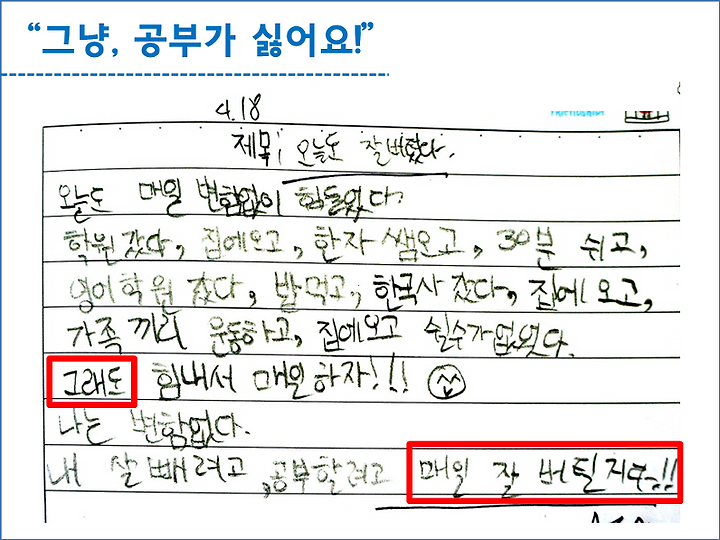 “그냥, 공부가 싫어요!”
4.18
제목: 오늘도 잘 버텼다.
오늘도 매일 변함없이 힘들었다.
학원갔다, 집에오고, 한자쌤오고, 30분 쉬고,
영어학원 갔다, 밥먹고, 한국사 갔다, 집에 오고,
가족끼리 운동하고, 집에오고 쉴수가없었다.
그래도 힘내서 매일하자!!!
나는 변함없다.
내 살빼려고, 공부할려고 매일 잘 버틸거다!!